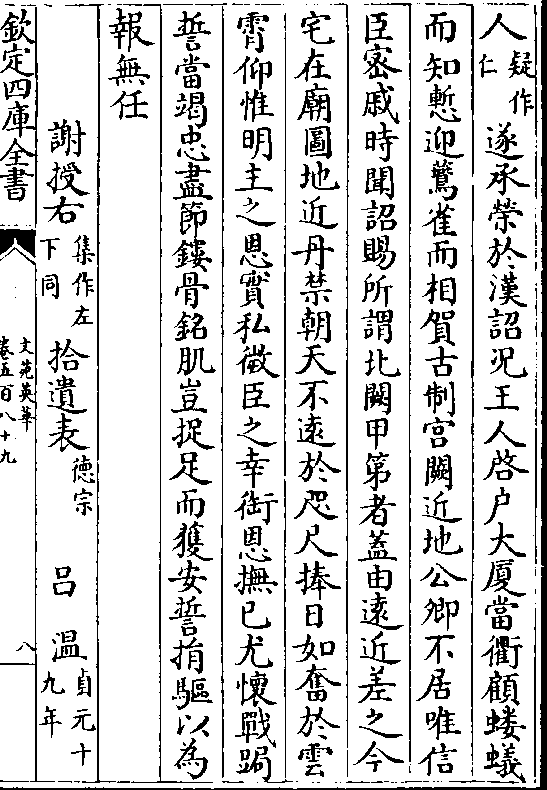 人疑作仁遂承榮於漢詔況王人啓户大厦當衢顧螻蟻
而知慙迎鷰雀而相賀古制宫闕近地公卿不居唯信
臣宻戚時聞詔賜所謂北闕甲第者蓋由遠近差之今
宅在廟圖地近丹禁朝天不遠於咫尺捧日如奮於雲
霄仰惟明主之恩實私微臣之幸銜恩撫已尤懷戰跼
誓當竭忠盡節鏤骨銘肌豈捉足而獲安誓捐驅以為
報無任
謝授右集作左下同拾遺表德宗 吕温貞元十九年
欽定四庫全書 文苑英華卷五百八十九 八